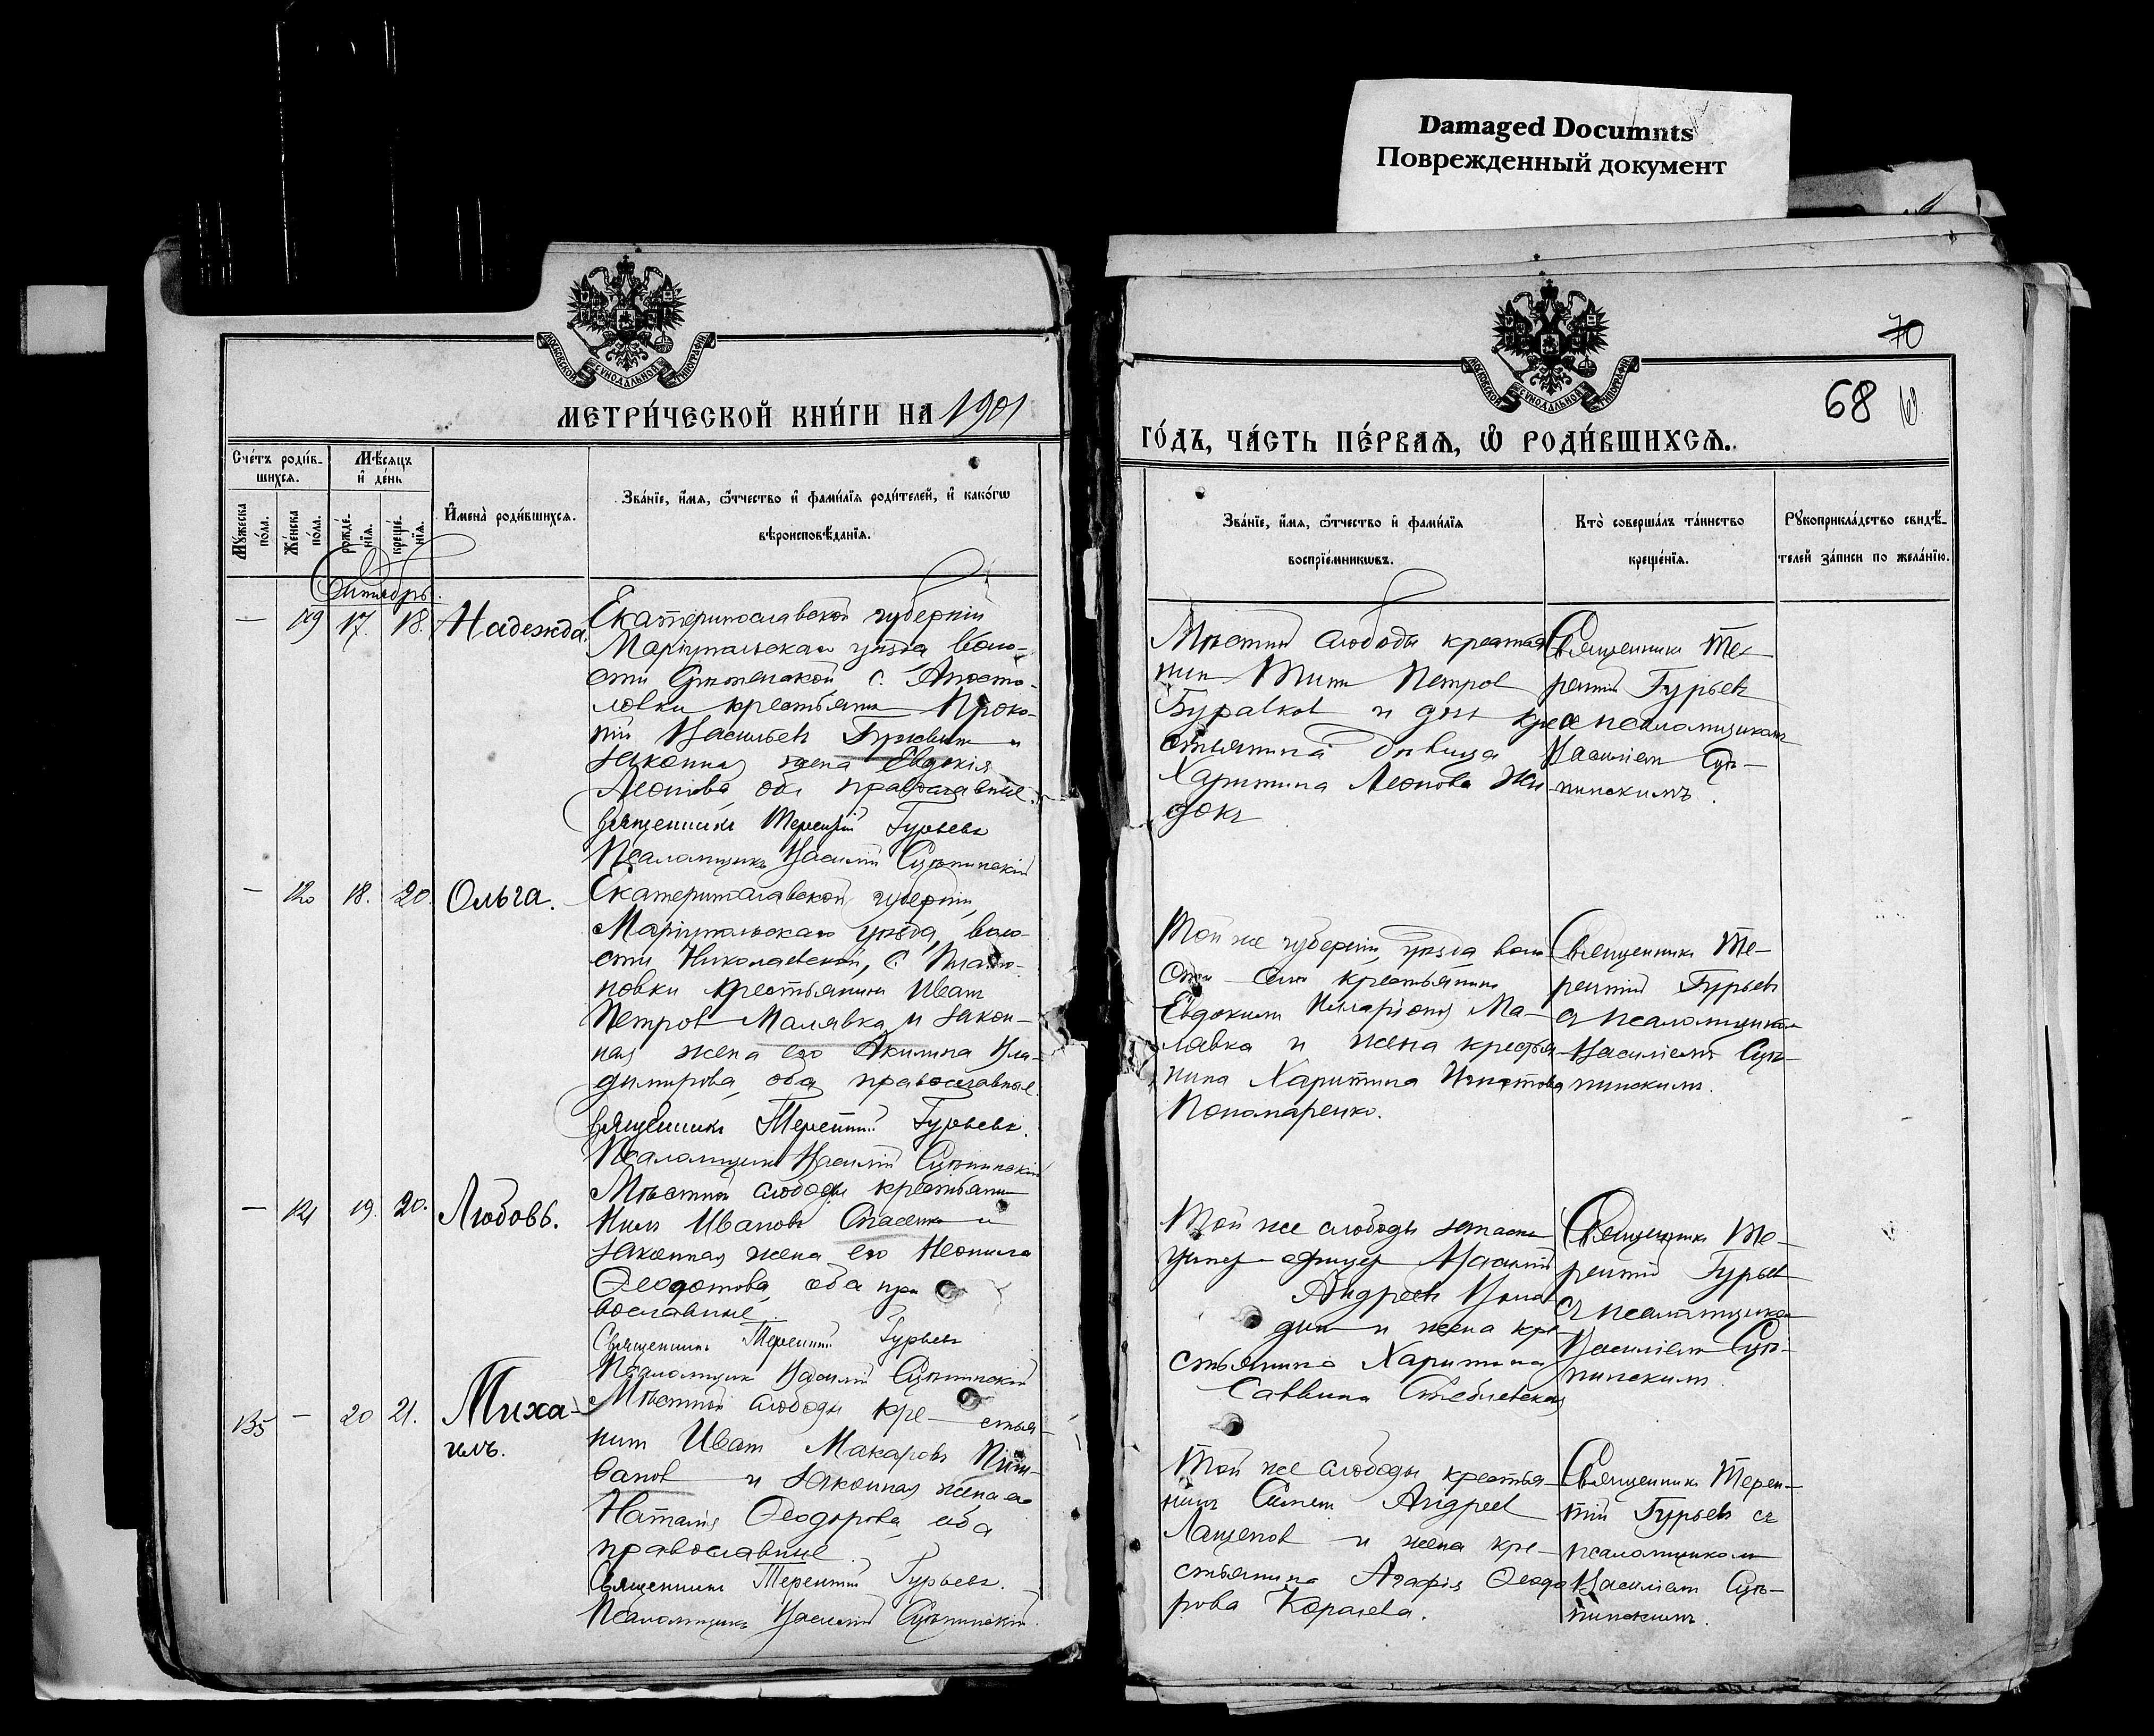 Damaged Documnts
Поврежденный документ
МОСКОВСКОЙ СѴНОДАЛЬНОЙ ТИПОГРАФІИ
МЕТРИ́ЧЕСКОЙ КНИ́ГИ НА 1901
Сче́тъ роди́в-
шихсѧ.
Мѣ́сѧцъ
и҆ де́нь
Мꙋ́жеска
по́ла.
Же́нска
по́ла.
рожде́-
нїѧ.
креще́-
нїѧ.
И҆мена̀ роди́вшихсѧ.
Зва́нїе, и҆́мѧ, ѻ҆́тчество и҆ фами́лїѧ роди́телей, и҆ како́гѡ
вѣроисповѣ́данїѧ.
Октябрь.
— 119 17. 18. Надежда.
Екатеринославской губерніи
Маріупольскаго уѣзда, воло-
сти С. Апосто-
ловки крестьянинъ Проко-
пій Васильевъ и
законная жена Евдокія
Леонова, оба православные.
Священникъ Терентій Гурьевъ
Псаломщикъ Василій
— 120 18. 20. Ольга.
Екатеринославской губерніи,
Маріупольскаго уѣзда, воло-
сти Николаевской, С. Плато-
новки крестьянинъ Иванъ
Петровъ Малявка и закон-
ная жена его Акилина Вла-
димирова, оба православные.
Священникъ Терентій Гурьевъ.
Псаломщикъ Василій
— 121 19. 20. Любовь.
Мѣстной слободы крестьянинъ
Нилъ Ивановъ Стасенко и
законная жена его Неонила
Ѳеодотова, оба пра
вославные.
Священникъ Терентій Гурьевъ
Псаломщикъ Василій
135 — 20 21. Миха-
илъ.
Мѣстной слободы кре- стья-
нинъ Иванъ Макаровъ
и законная жена его
Наталія Ѳеодорова, оба
православные.
Священникъ Терентій Гурьевъ.
Псаломщикъ Василій
70
МОСКОВСКОЙ СѴНОДАЛЬНОЙ ТИПОГРАФІИ
68
ГО́ДЪ, ЧА́СТЬ ПЕ́РВАѦ, Ѡ҆ РОДИ́ВШИХСѦ.
Зва́нїе, и҆́мѧ, ѻ҆́тчество и҆ фами́лїѧ
воспрїе́мникѡвъ.
Кто̀ соверша́лъ та́инство
креще́нїѧ.
Рꙋкоприкла́дство свидѣ́-
телей за́писи по жела́нїю.
Мѣстной слободы крестья
нинъ Титъ Петровъ
Буравковъ и дочь кре
стьянина дѣвица
Харитина Леонова Жи
докъ
Священникъ Те-
рентій Гурьевъ
съ псаломщикомъ
Василіемъ
Той же губерніи, уѣзда воло
сти села крестьянинъ
Евдокимъ Иларіоновъ Ма-
лявка и жена крестья-
нина Харитина Игнатова
Пономаренко.
Священникъ Те-
рентій Гурьевъ
съ псаломщикомъ
Василіемъ
Той же слободы запасный
унтер-офицеръ Василій
Андреевъ
и жена кре-
стьянина Харитина
Саввина Стеблевская
Священникъ Те-
рентій Гурьевъ
съ псаломщикомъ
Василіемъ
Той же слободы крестья-
нинъ Андреевъ
Лащеновъ и жена кре-
стьянина Агафія Ѳеодо
рова Королева.
Священникъ Терен-
тій Гурьевъ съ
псаломщикомъ
Василіемъ